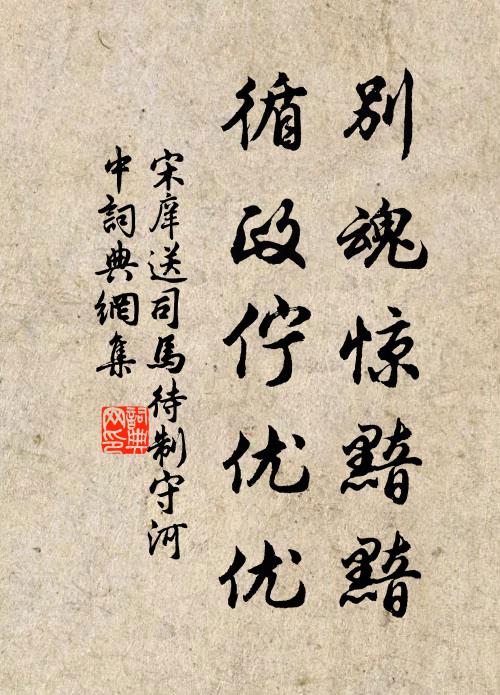 别魂惊黯黯
循政伫优优
宋庠送司馬待制守河
中詞典網集
詞典
网印